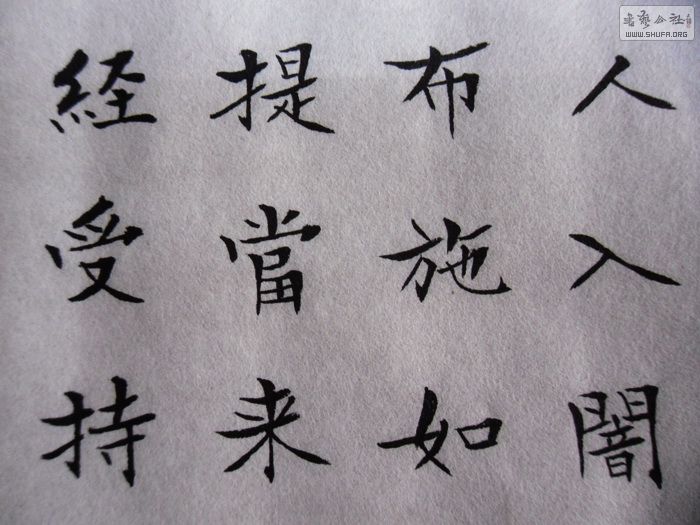 人入闇
布施如
提當来
経受持
書藝公社
WWW.SHUFA.ORG